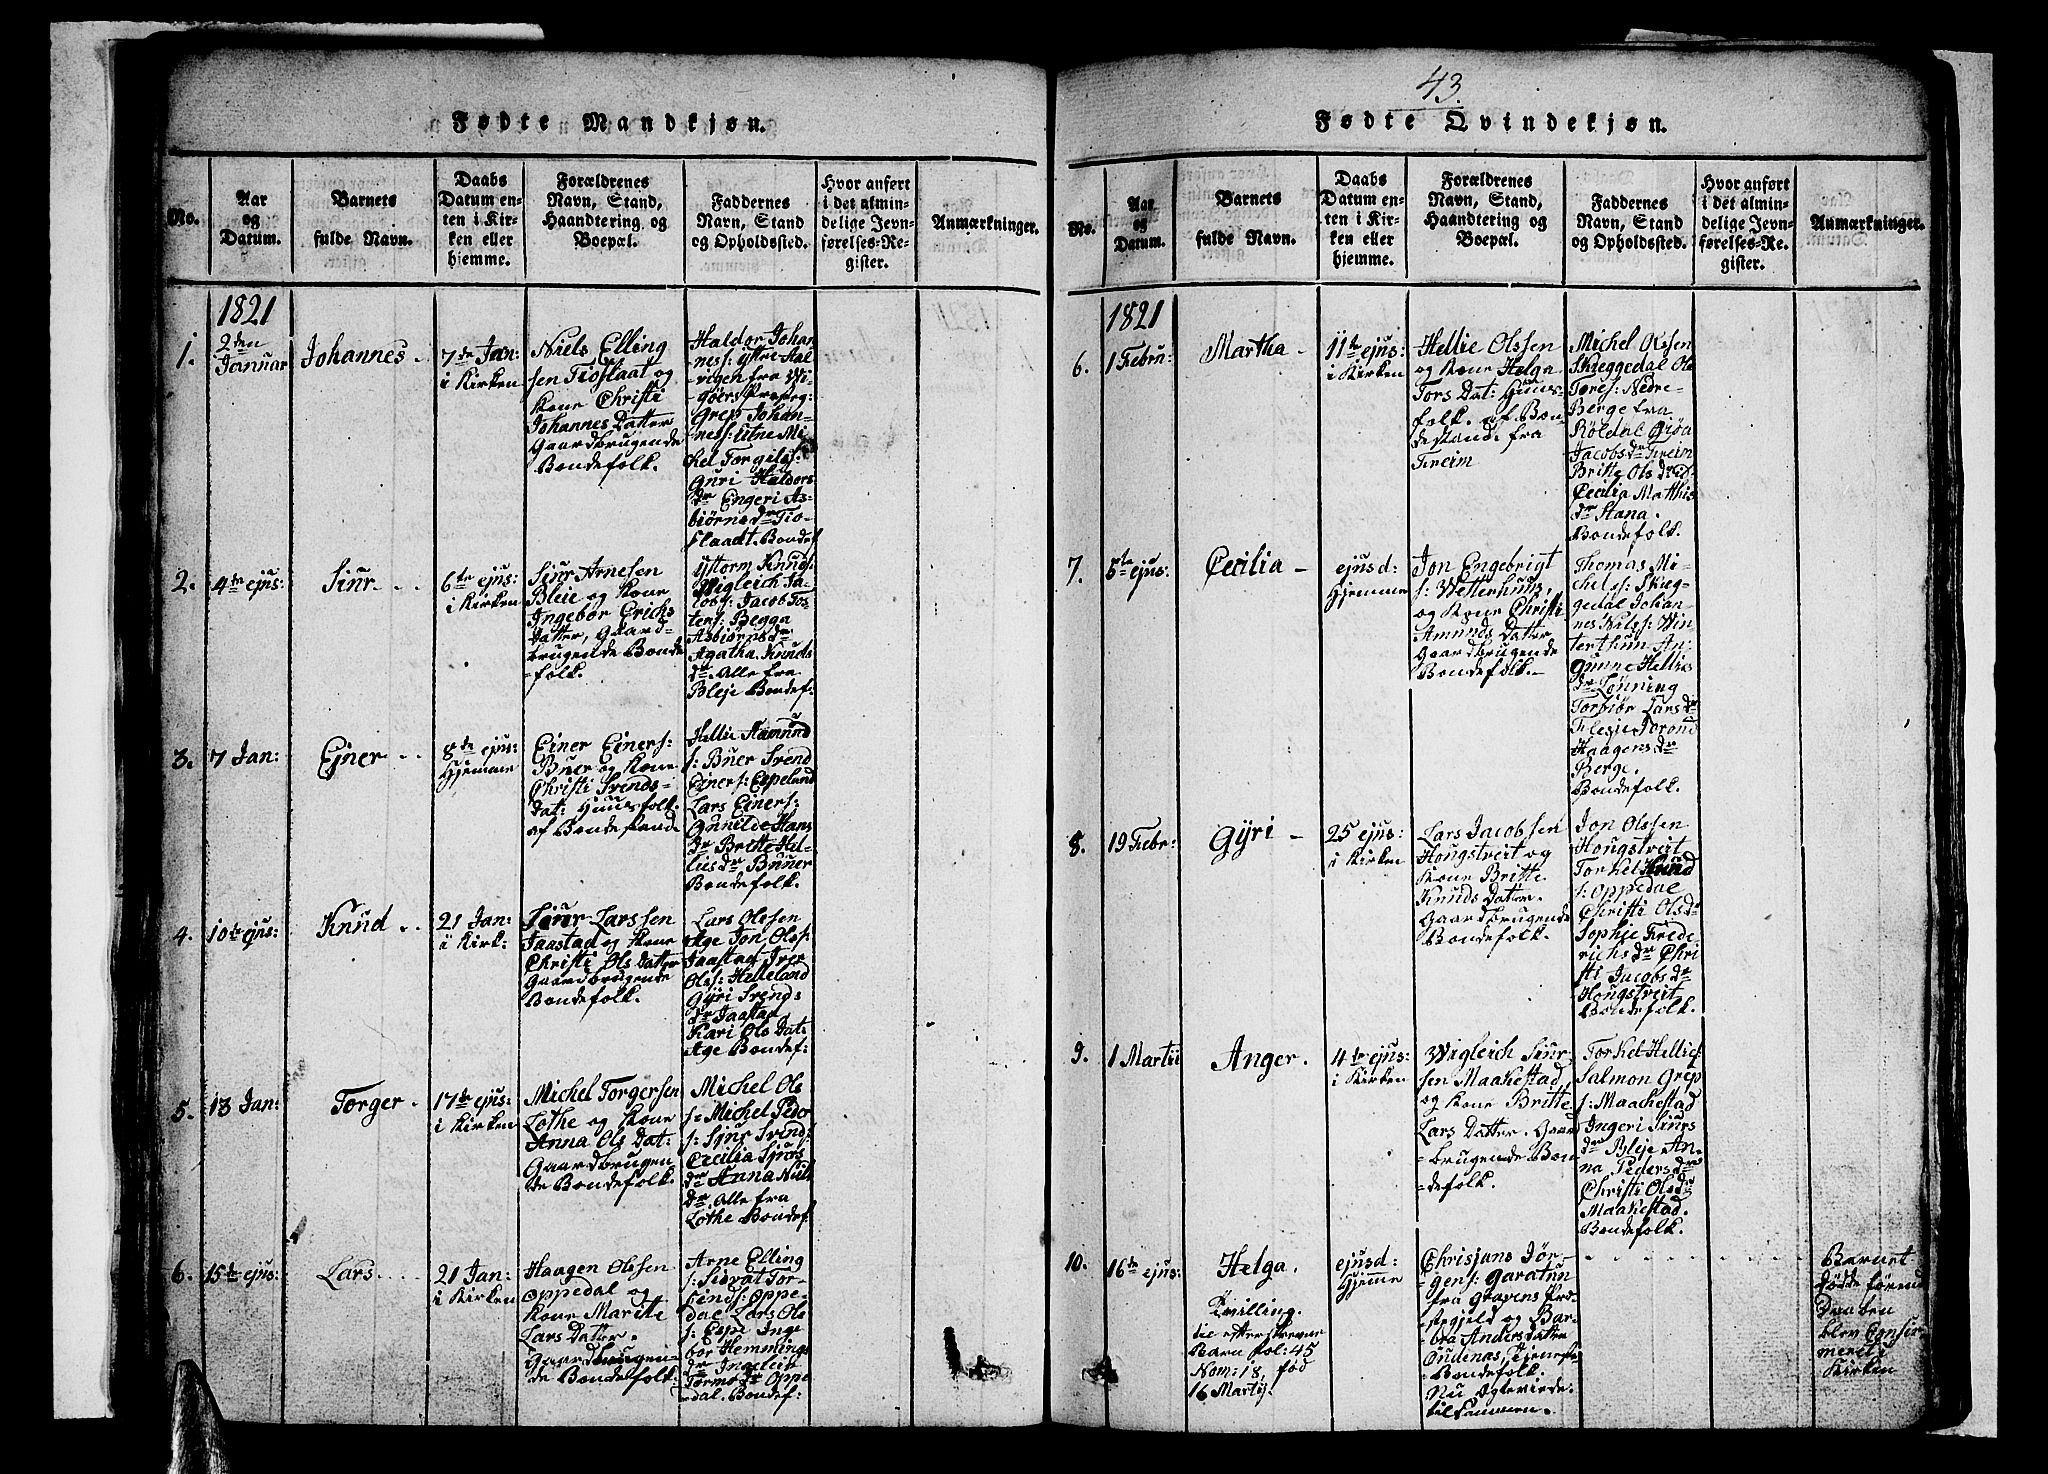 43.
Fødte Mandkjøn.
No.
Aar
og
Datum.
Barnets
fulde Navn.
Daabs
Datum en-
ten i Kir-
ken eller
hjemme.
Forældrenes
Navn, Stand,
Haandtering og
Boepæl.
Faddernes
Navn, Stand
og Opholdssted.
Hvor anført
i det almin-
delige Jevn-
førelses-Re-
gister.
Anmærkninger.
1821
1.
2den
Januar
Johannes
7de Jan:
i Kirken
Niels Elling
sen Tioslaat og
Kone Christi
Johannes Datter
Gaardbrugende
Bondefolk.
Haldor Johan
nes: Yttre-Aal
vigen fra Vi-
göers Præsteg:
Grep Johan-
nes: Utne Mi
chel Torgils:
Guri Haldors
dr Engeri As-
biörns dr Tio-
slaadt. Bondef
2.
4de ejus:
Siur
6te ejus:
i Kirken
Siur Arnesen
Bleie og Kone
Ingebor Erichs
Datter, Gaard-
brugende Bonde
-folk.
Gyttorm Knuds
Wigleich Ja-
cobs: Jacob Tos
tens: Begga
Asbiörns dr
Agatha Knuds
dr. Alle fra
Bleje Bondef:
3.
7 Jan:
Ejner
8de ejus:
Hjemme
Einer Einers:
Buer og Kone
Christi Svends-
dat: Huusfolk
af Bondestand.
Hellie Aamund
s: Buer Svend
Einers: Espeland
Lars Einers:
Gunilie Hans
dr Britte Hel-
lies dr Buuer
Bondefolk.
4.
10de ejus:
Knud
21 Jan:
i Kirk:
Siur Larssen
Jaastad og Kone
Christi Ols Datter
Gaardbrugende
Bondefolk.
Lars Olssen
Age Jon Ols:
Jaastad Iver
Ols: Helleland
Gÿri Svends
dr Jaastad
Kari Ols Dat:
Age Bondef:
5.
13 Jan:
Torger
17de ejus:
i Kirken
Michel Torgersen
Lothe og Kone
Anna Ols Dat:
Gaardbrugen
de Bondefolk.
Michel Ols
s: Michel Peder
s: Sjur Svend:
Cecilia Sjurs
dr Anna Niels
dr. Alle fra
Lothe Bondef
6.
15de ejus:
Lars
21 Jan:
i Kirken
Haagen Olssen
Oppedal og
Kone Marite
Lars Datter.
Gaardbrugen-
de Bondefolk.
Arne Elling
s: Sivat Tor-
finds: Oppe-
dal Lars Ols
s: Espe Inge
bor Hemmings
dr
Tormo dr Oppe
-dal. Bondef:
Fødte Qvindekjøn.
No.
Aar
og
Datum.
Barnets
fulde Navn.
Daabs
Datum en-
ten i Kir-
ken eller
hjemme.
Forældrenes
Navn, Stand,
Haandtering og
Boepæl.
Faddernes
Navn, Stand
og Opholdssted.
Hvor anført
i det almin-
delige Jevn-
førelses-Re-
gister.
Anmærkninger.
1821
6.
1 Febru:
Martha
11te ejus:
i Kirken
Hellie Olssen
og Kone Helga
Tors Dat: Huus-
folk af Bon-
destand. fra
Freim
Michel Olssen
Skieggedal Ole
Tores: Nedre-
Berge fra
Röldal Giöa
Jacobs dr Freim
Britte Ols dr
Cecilia Matthis
dr Stana.
Bondefolk.
7.
5te ejus:
Cecilia
ejusd:
Hjemme
Jon Engebrigt
s: Wetterhuus,
og Kone Christi
Amunds Datter
Gaardbrugende
Bondefolk.
Thomas Mi-
chels: Skieg-
gedal Johan-
nes Nils: Win-
terthun An
Gunne Hellies
dr Lönning
Torbiör Lars dr
Flesie Torond
Haagens dr
Berge.
Bondefolk.
8.
19 Febr:
Gÿri
25 ejus:
i Kirken
Lars Jacobsen
Hougstveit og
Kone Britte
Knuds Datter.
Gaardbrugende
Bondefolk.
Jon Olssen
Hougstveit
Torkel Knud
s: Oppedal
Christi Ols dr
Sophie Frede
richs dr Chri
sti Jacobs dr
Hougstveit
Bondefolk.
9.
1 Martii
Anger.
4de ejus:
i Kirken
Wigleich Siur-
sen Maakestad
og Kone Britte
Lars Datter. Gaar
-brugende Bon
-defolk.
Torkel Hellies:
Salmon Grep
s: Maakestad
Ingeri Siurs
dr Bleje An
na Peders dr
Christi Ols dr
Maakestad.
Bondefolk.
10.
16de ejus:
Helga.
Tvilling.
til efterskrevne
Barn fol: 45
Nom: 18, fød
16 Martij.
ejusd:
Hjemme
Chrisjans Jör-
gens: Garatun
fra Gravens Præ
stegjeld og Bar-
bra Anders datter
Tieneste
Bondefolk.
Nu Egteviede
tilsammen.
Barnet
dødde förend
Daaben
blev Confir-
meret i
Kirken